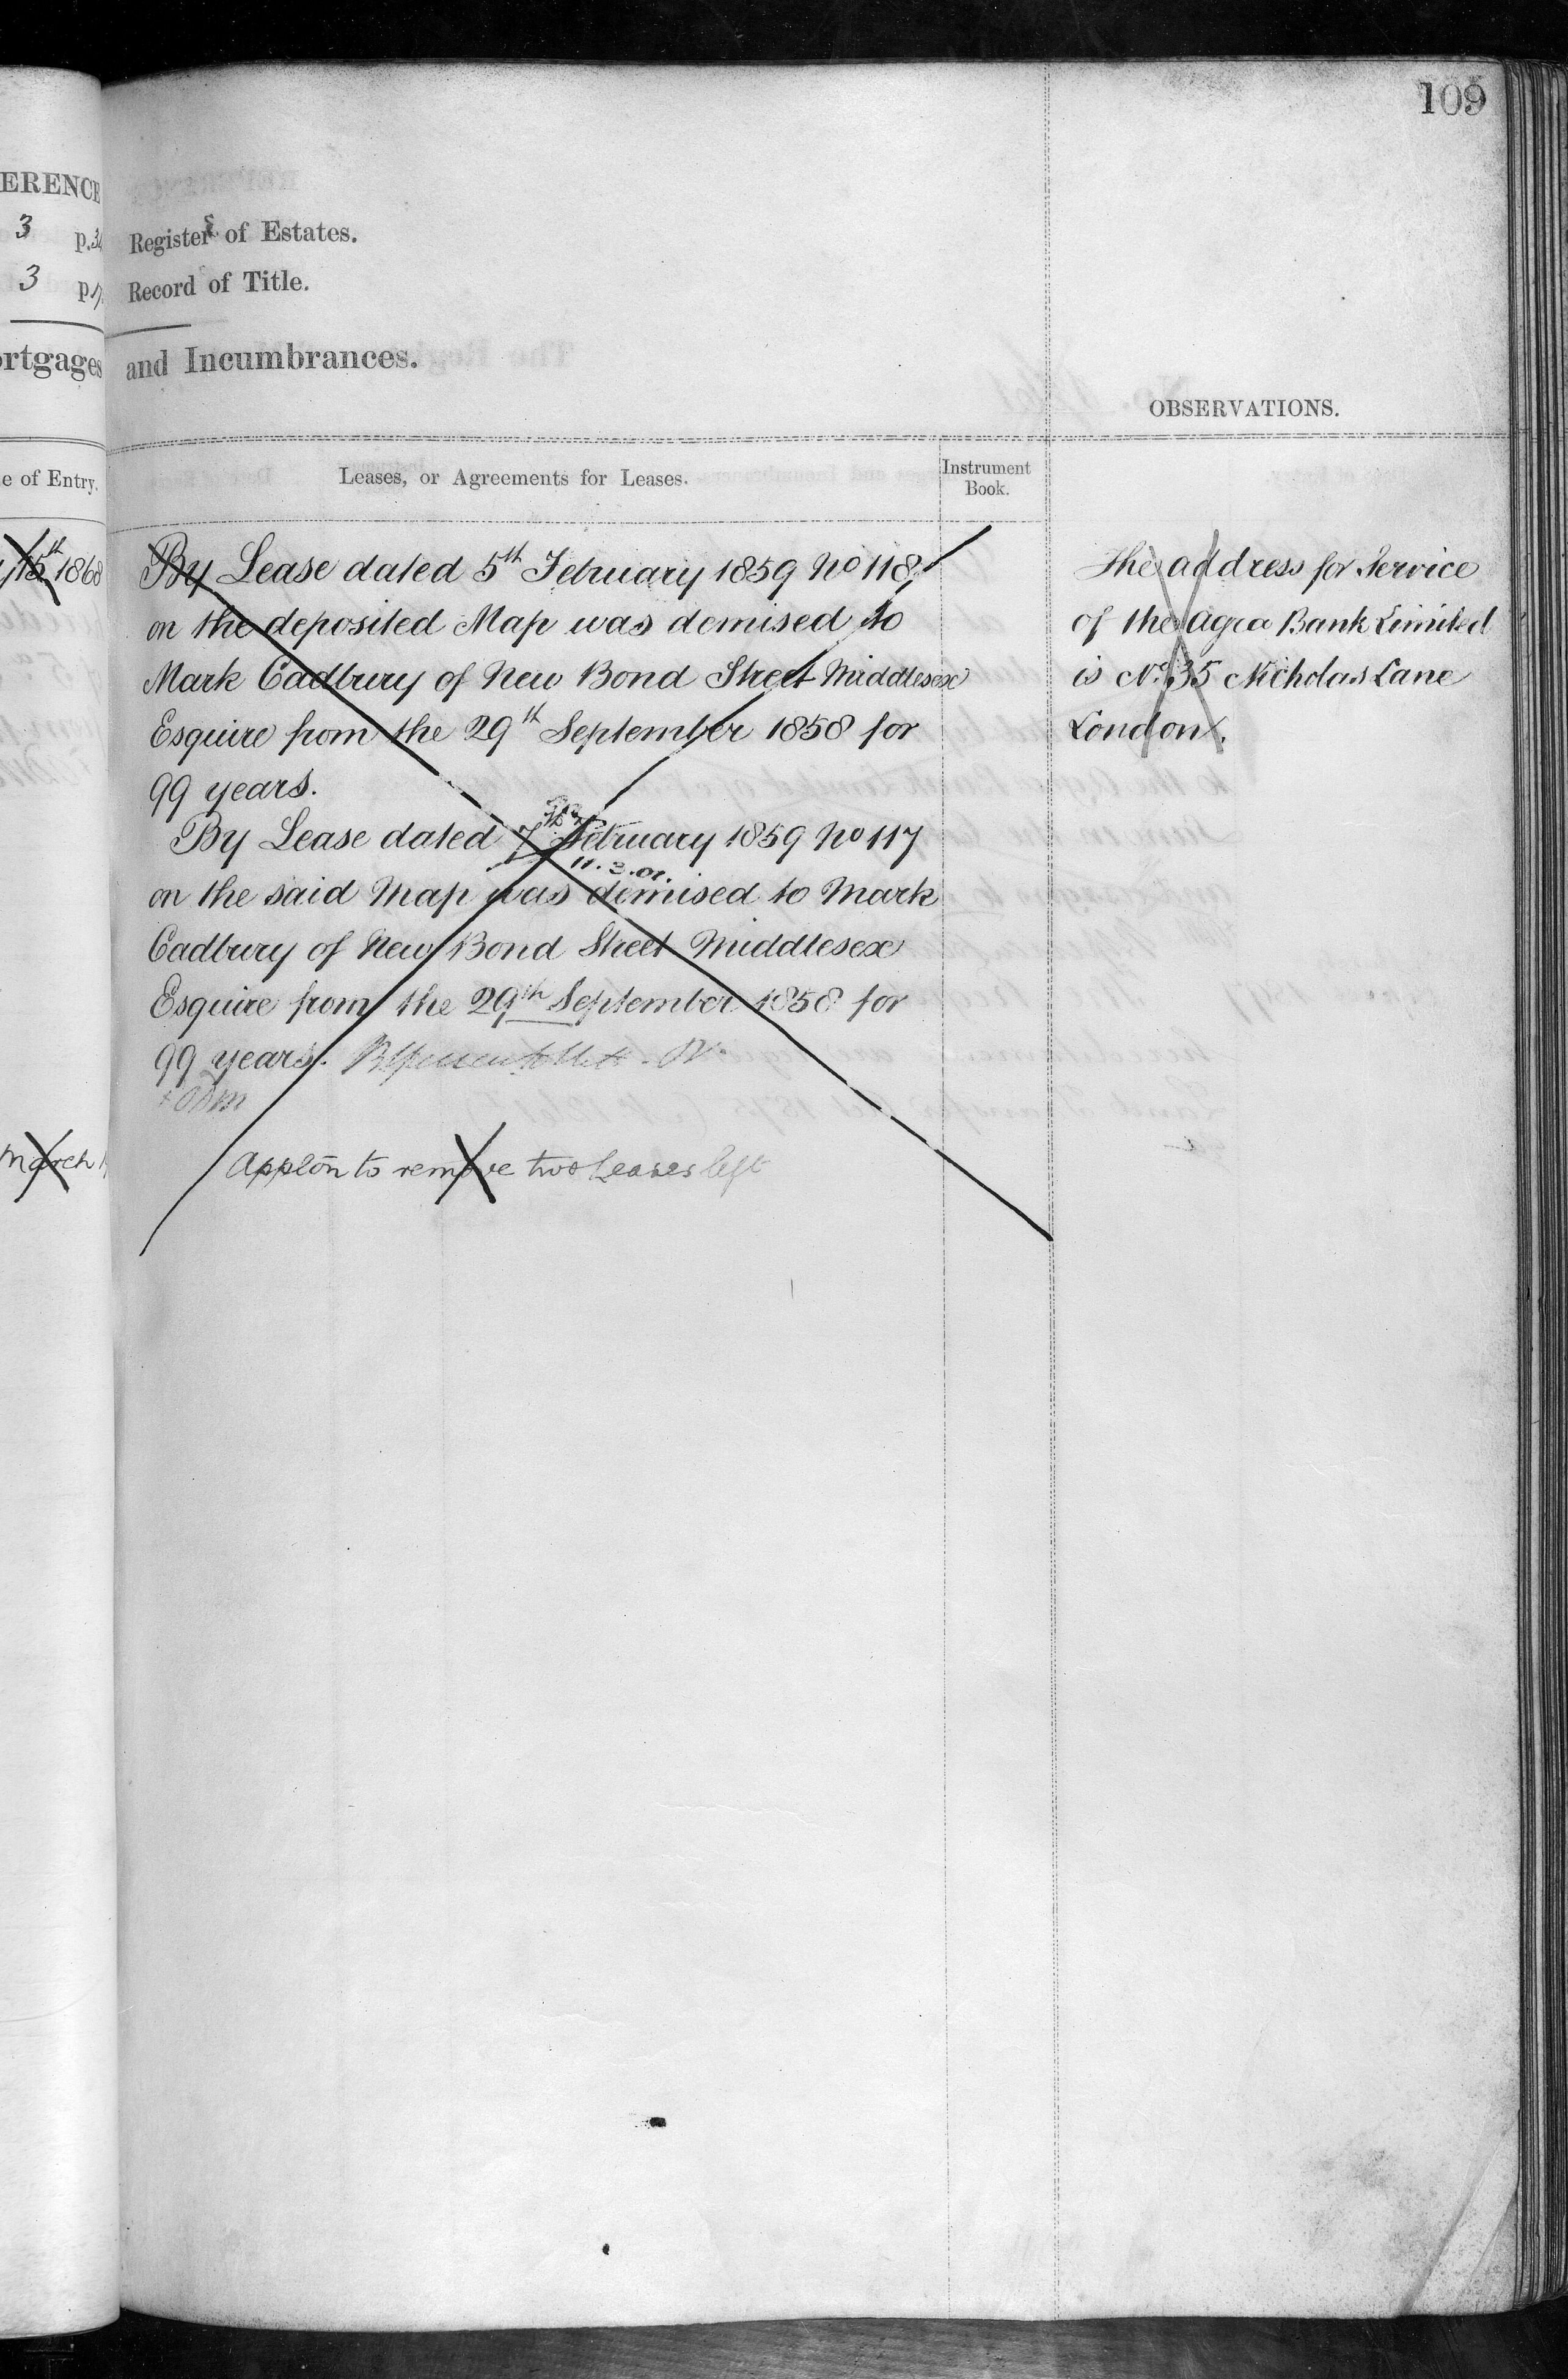 109
ERENCE
3 p.
3 p.
ortgages
e of Entry.
15th 1868
March
Register of Estates.
Record of Title.
and Incumbrances.
OBSERVATIONS.
Leases, or Agreements for Leases.
Instrument
Book.
By Lease dated 5th February 1859 No 118
on the deposited Map was demised to
Mark Cadbury of New Bond Street Middlesex
Esquire from the 29th September 1858 for
99 years.
By Lease dated 7 February 1859 No 117
11.3.01.
on the said Map was demised to Mark
Cadbury of New Bond Street Middlesex
Esquire from the 29th September 1858 for
99 years.
Applōn to remove two Leases left
The address for Service
of the Agra Bank Limited
is No. 35 Nicholas Lane
London.